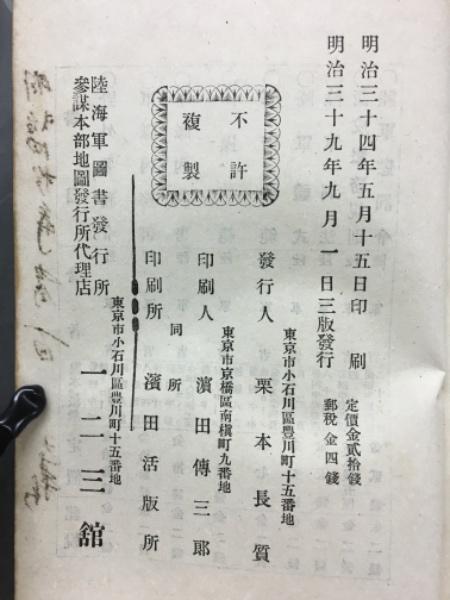 明治三十四年五月十五日印刷
明治三十九年九月一日三版發行
定價金貳拾錢
郵税金四錢
不許
複製
東京市小石川區豊川町十五番地
發行人 栗本長質
東京市京橋區南槇町九番地
印刷人 濵田傳三郎
同所
印刷所 濵田活版所
陸海軍圖書發行所
參謀本部地圖發行所代理店
東京市小石川區豊川町十五番地
一二三舘